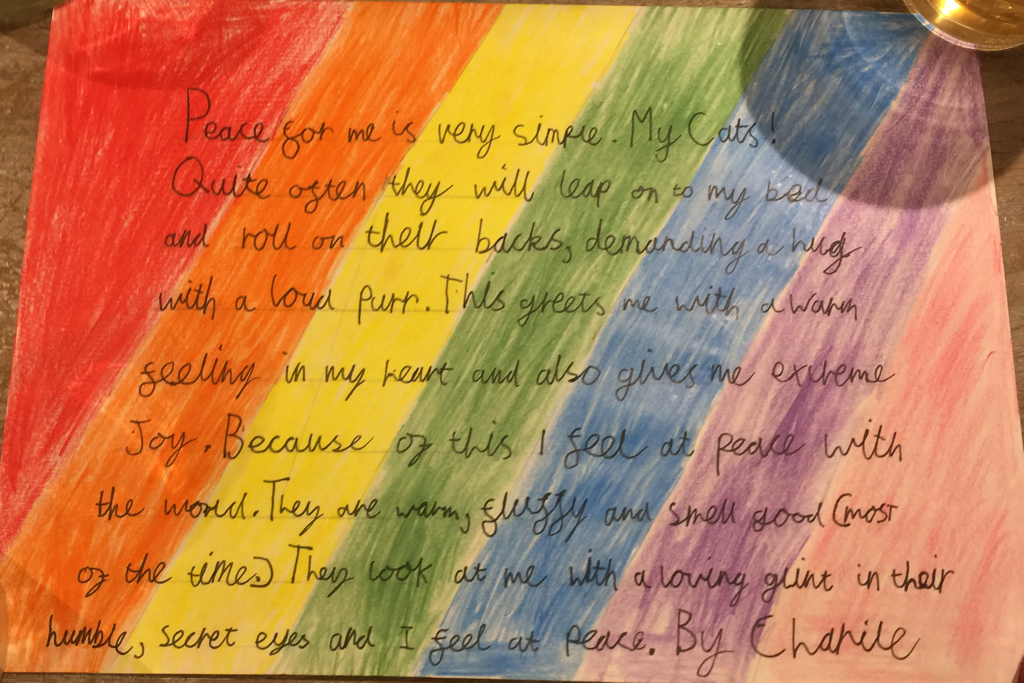 Peace for me is very simple. My Cats!
Quite often they will leap on to my bed
and roll on their backs, demanding a hug
with a loud purr. This greets me with a warm
feeling in my heart and also gives me extreme
Joy. Because of this I feel at peace with
the world. They are warm, fluffy and smell good (most
of the time.) They look at me with a loving glint in their
humble, secret eyes and I feel at peace. By Charlie